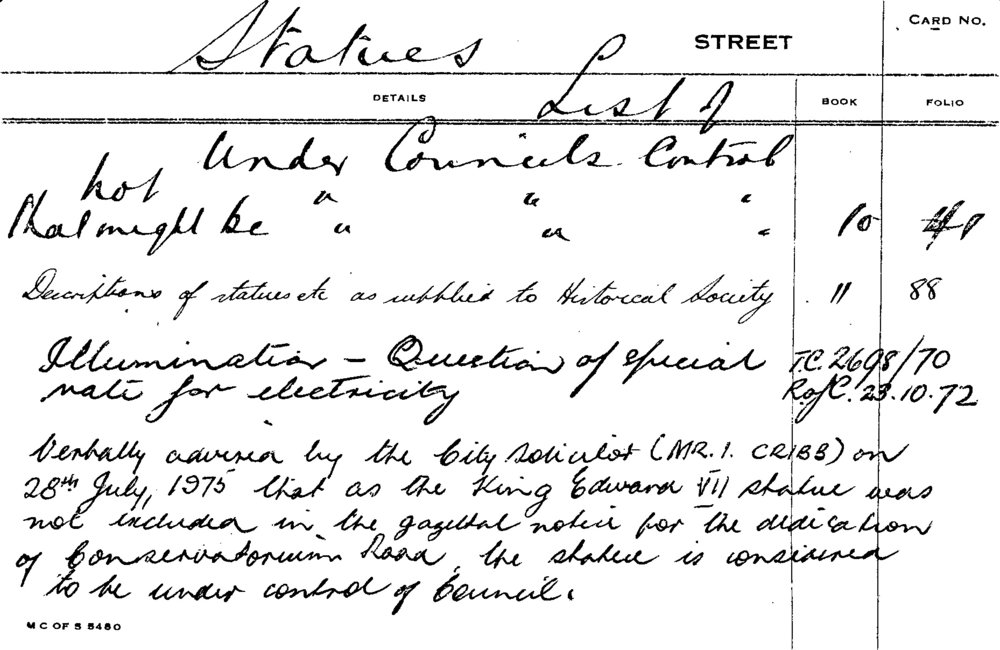 Statues STREET CARD No.
DETAILS List of BOOK FOLIO
Under Councils Control
not " " "
That might be " " " 10
Descriptions of statues etc as supplied to Historical Society " 88
Illumination - Question of special T.C. 2698/70
rate for electricity R of C. 23.10.72
Verbally advised by the City Solicitor (MR. I. CRIBB) on
28th July, 1975 that as the King Edward VII statue was
not included in the gazettal notice for the dedication
of Conservatorium Road, the statue is considered
to be under control of Council.
M C OF S 5480